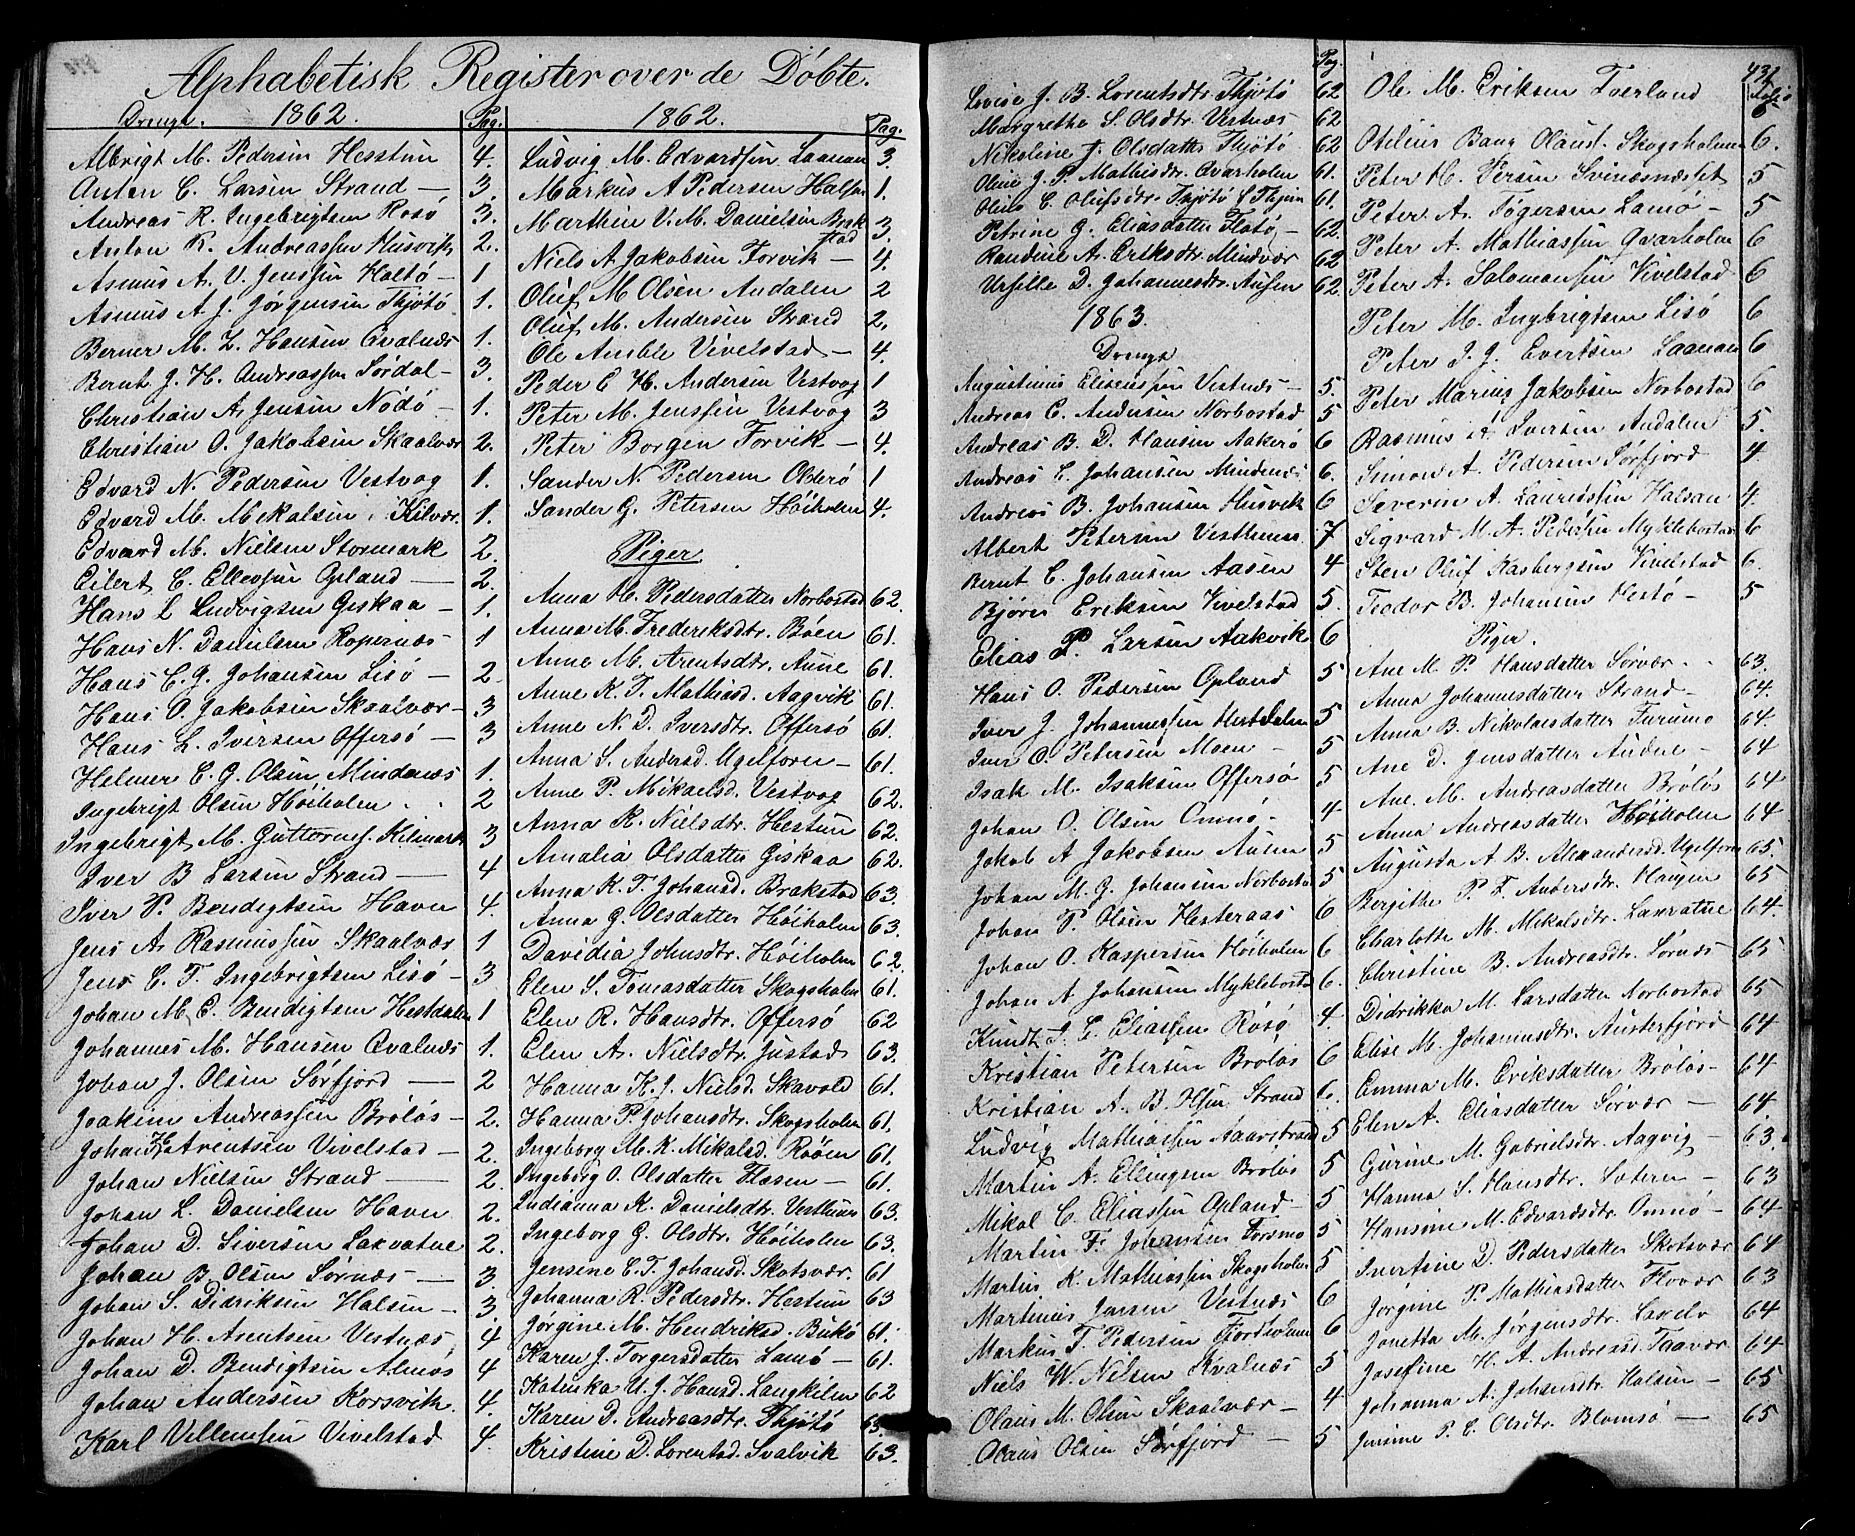 Alphabetisk Register over de Döbte.
Drenge. 1862. Pag.
Albrigt M. Pedersen Hesstun 4.
Anton C. Larsen Strand — 3.
Andreas R. Ingebrigtsen Rosö 3.
Anton R. Andreassen Husvik 2.
Asmus A. V. Jenssen Haltö — 1
Asmus A. J. Jörgensen Thjötö 1.
Berner M. Z. Hansen Qvalnæs 1.
Bernt J. H. Andreassen Sördal — 3.
Christian A. Jensen Nödö — 1.
Christian O. Jakobsen Skaalvær 2.
Edvard N. Pedersen Vestvog 1.
Edvard M. Mekalsen Kilvær. 1.
Edvard M. Nielsen Stormark 2.
Eilert C. Ellevsen Opland — 2
Hans L Ludvigsen Giskaa — 1.
Hans N. Danielsen Ropernæs — 1
Hans C. G. Johansen Lisö — 2
Hans O. Jakobsen Skaalvær — 3
Hans L. Iversen Offersö — 3
Helmer C. G. Olsen Mindenæs 1.
Ingebrigt Olsen Höiholen . . 2
Ingebrigt M. Guttormsf. Hilmark 3
Iver B Larsen Strand — 4
Iver P. Bendigtsen Havn 4.
Jens A. Rasmussen Skaalvær 1
Jens C. F. Ingebrigtsen Lisö — 3
Johan M. C. Bendigtsen Hestdalen 1
Johannes M. Hansen Qvalnæs 1.
Johan J. Olsen Sörfjord — 2
Joakim Andreassen Bröløs — 2.
Johan H. Arentsen Vivelstad — 2.
Johan Nielsen Strand — 2.
Johan L. Danielsen Havn 2.
Johan D. Siversen Laxvatne 2.
Johan B Olsen Sörnæs — 3
Johan S. Didriksen Halsen — 3.
Johan H. Arentsen Vestnæs 4
Johan D. Bendigtsen Almös 4
Johan Andersen Korsvik 4.
Karl Villemsen Vivelstad 4.
1862. Pag.
Ludvig M. Edvardsen Laanan 3.
Markus A Pedersen Halsen 1.
Marthin V. M. Danielsen Brakstad 3.
Niels A Jakobsen Forvik — 4.
Oluf M Olsen Andalen 2
Oluf M. Andersen Strand 2.
Ole Amble Vivelstad — 4.
Peder C H. Andersen Vestvog 1
Peter M. Jenssen Vestvog 3
Peter Borgen Forvik — 4.
Sander N. Pedersen Olderö 1
Sander G. Petersen Höiholen 4.
Piger
Anna H. Pedersdatter Norbostad 62.
Anna M. Frederiksdtr. Böen 61.
Anne M. Arentsdtr. Aune 61.
Anne K. F. Mathiasd. Aagvik 61.
Anne N. D. Iversdtr. Offersö 61.
Anna S. Andersd. Ugelforen — 61.
Anne P. Mikaelsd. Vestvog 62.
Anna K. Nielsdtr. Hestun 62.
Amalia Olsdatter Giskaa 62.
Anna K. F. Johansd. Brakestad 63.
Anna G. Olsdatter Höiholen 63.
Davidia Johnsdtr. Höiholen 62.
Elen S. Tomasdatter Skogsholm 61.
Elen R. Hansdtr. Offersö 62
Elen A. Nielsdtr. Justad 63.
Hanna K. J. Nielsd. Skavold 61.
Hanna P. Johansdtr. Skogsholm 61.
Ingeborg M. K. Mikalsd. Rööen 61.
Ingeborg O. Olsdatter Flasen — 61.
Indianna K. Danielsdtr. Vesthuus 63.
Ingeborg G. Olsdtr. Höiholen 63.
Jensine C. F. Johansd. Skotsvær. 61
Johanna R. Pedersdtr. Hestun 63
Jörgine M. Hendriksd. Bukö 61.
Karen J. Torgersdatter Lamö — 61.
Katinka U. J. Hansd. Langkilen 62
Karen D. Andreasdtr. Thjötö 63.
Kristine D. Lorentsd. Svalvik 63.
Pag.
Lovise J. B. Lorentsdtr. Thjötö 62
Margrethe S. Olsdtr. Vestnæs 62
Nikoline J. Olsdatter Thjötö 62
Oline J. P. Mathisdtr. Qvarholm 61.
Oline C. Olufsdtr. Thjötö 61.
Petrine G. Eliasdatter Flötö — 62
Randine A. Eriksdtr. Mindvær 62
Urselle D. Johannesdtr. Ausen 62.
1863.
Drenge
Augustinus Elisenssen Vestnæs — 5.
Andreas C. Andersen Norbostad 5
Andreas B. D. Hansen Aakerö 6
Andreas L. Johansen Mindenæs 6.
Andreas B. Johansen Husvik 6
Albert Petersen Vesthuus 7
Bernt C. Johansen Aasen 4
Björn Eriksen Vivelstad 5.
Elias P. Larsen Aakvik 6
Hans O. Pedersen Opland 5
Iver J. Johannessen Hestdalen 5
Iver O. Petersen Moen — 5
Isak M. Isaksen Offersö 5
Johan O. Olsen Ommö — 4
Jakob A Jakobsen Ausen 5
Johan M. J. Johansen Norbostad 5
Johan P. Olsen Hesteraas 6
Johan O. Kaspersen Höiholen 6
Johan A. Johansen Myklebostad 6.
Knudt J. E. Eliassen Rosö 4
Kristian Petersen Bröløs 6
Kristian A. B. Olsen Strand 6.
Ludvig Mathiassen Aarstrand 5
Martin A. Ellingsen Bröløs 5
Mikal C. Eliassen Opland — 5
Martin F. Johansen Forsmo 5
Martin K. Mathiassen Skogsholm 5
Martinus Jensen Vestnæs 6
Markus T. Pedersen Fjordholmen 6
Niels W. Nilsen Kvalnæs 5
Olaus M. Olsen Skaalvær — 4
Olaus Olsen Sörfjord — 5
431
Folio
Ole M. Eriksen Tverland 6
Otilius Bang Olaus. Skogsholmen 6.
Peter H. Persen Svinæsnæsset 5
Peter A. Fögersen Lamö — 5
Peter A. Mathiassen Qvarholm 6
Peter A. Salomonsen Vivelstad 6
Peter M. Ingebrigtsen Lisö 6
Peter J. J. Evertsen Laanan 6
Peter Marius Jakobsen Norbostad 6
Rasmus A. Iversen Andalen 5.
Simon A. Pedersen Sörfjord 4
Severin A. Lauridssen Halsan 4.
Sigvard M. A. Pedersen Myklebostad 6
Sten Oluf Kasbergsen Vivelstad 6.
Teodor B. Johansen Hestö — 5
Piger.
Ane M. P. Hansdatter Sörvær . . 63.
Anna Johannesdatter Strand — 64.
Anna B. Nikolaisdatter Furumo 64.
Ane D. Jensdatter Audne — 64
Ane. M. Andreasdatter Bröløs 64
Anna Andreasdatter Höiholen 64
Augusta A. B. Alexandersd. Ugelforen 65.
Bergithe P. F. Andersdtr. Haugen 65
Charlotte M. Mikalsdtr. Laxvatne 64.
Christine B. Andreasdtr. Sörnæs 65
Didrikka M. Larsdatter Norbostad 65
Elise M. Johannesdtr. Austerfjord 64
Emma M. Eriksdatter Bröløs — 64
Elen A. Eliasdatter Sörvær — 64
Gurine M. Gabrielsdtr. Aagvig — 63.
Hanna S. Hansdtr. Sæteren — 63
Hansine M. Edvardsdtr. Ommö — 64
Ivertine D. Pedersdatter Skotsvær 64
Jörgine P. Mathiasdatter Flovær 63
Jonetta M. Jörgensdtr. 64
Josefine H. A. Andreasd. Taavær 64
Johanna A. Johansdtr. Halsen — 65
Jensine P. E. Olsdtr. Blomsö — 65